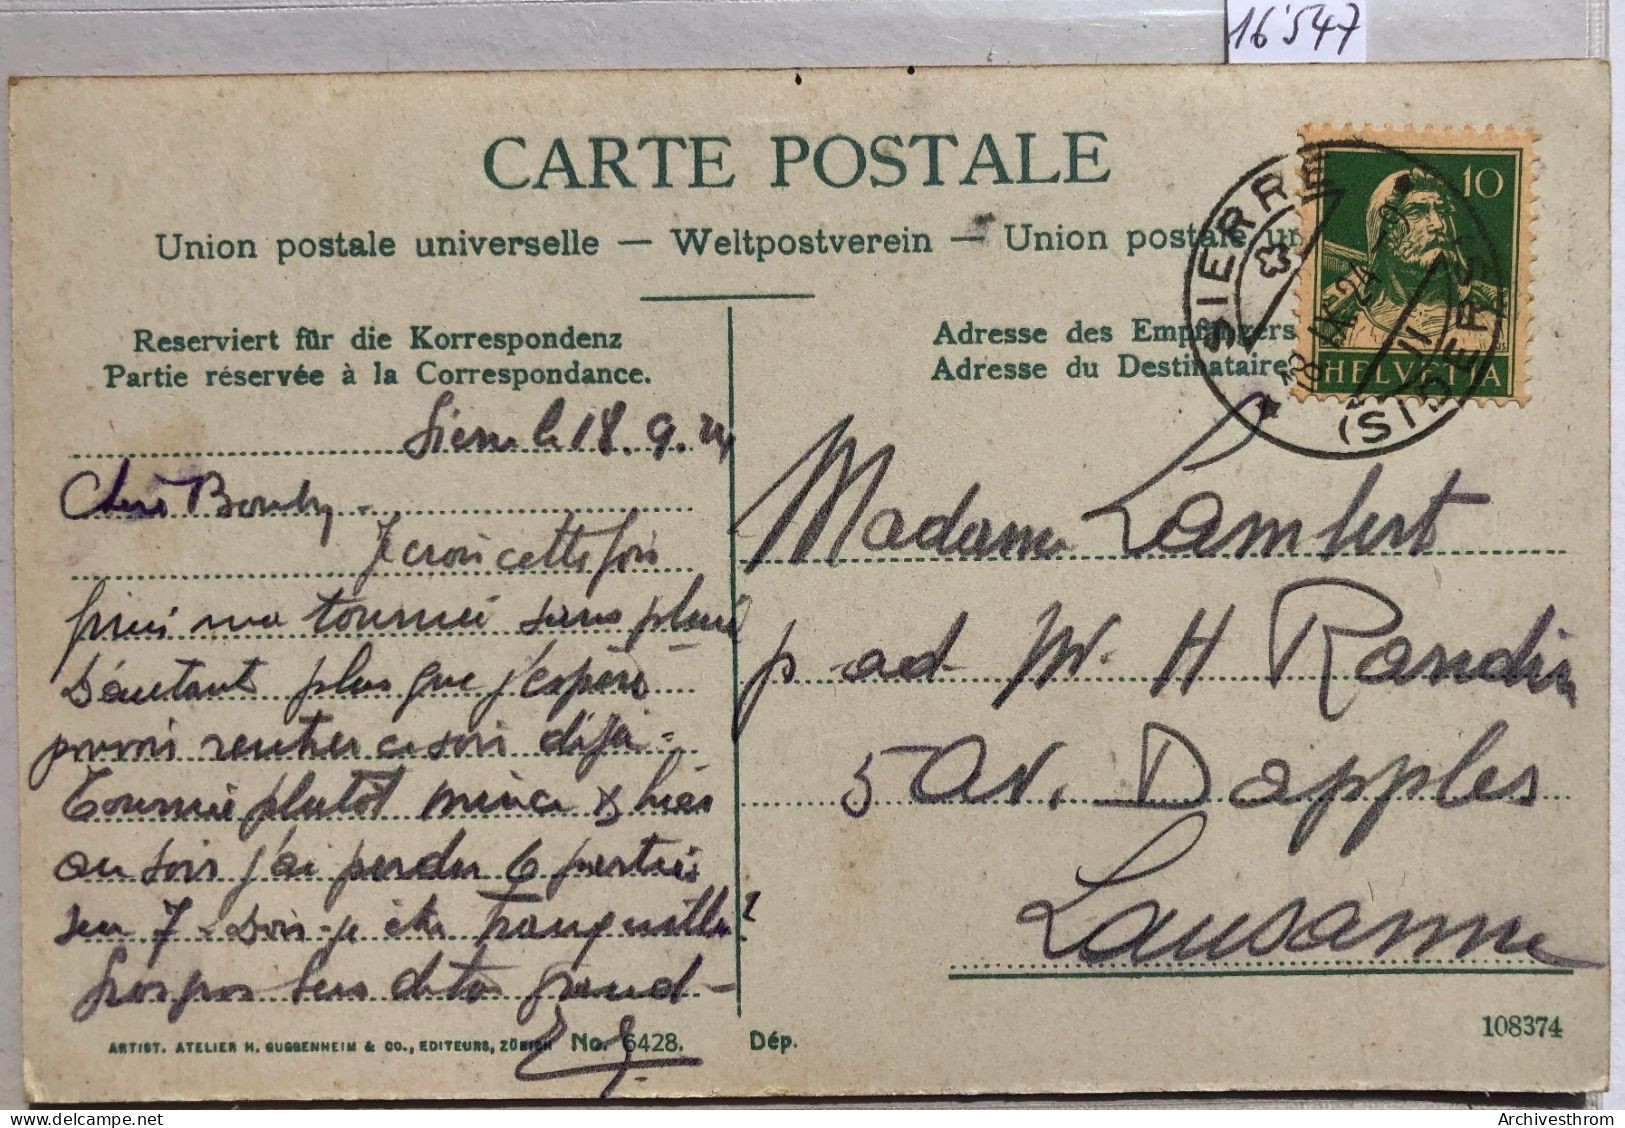 16'547
CARTE POSTALE
Union postale universelle — Weltpostverein — Union postale un
Reserviert für die Korrespondenz
Partie réservée à la Correspondance.
Adresse des Empfängers
Adresse du Destinataire
10
HELVETIA
SIERRE
18.IX.24
(SIDERS)
le 18.9.24
J crois cette fois
fini ma tournée sans
d'autant plus que j'espère
pouvoir rentrer ce soir déjà.
Tournée plutôt mince & hier
au soir j'ai perdu 6 parties
sur 7. Dois-je être tranquille?
grand
Madame Lambert
p. ad M. H Randin
5 Av. Dapples
Lausanne
ARTIST. ATELIER H. GUGGENHEIM & CO., EDITEURS, ZÜRICH No. 6428.
Dép.
108374
Archivesthrom